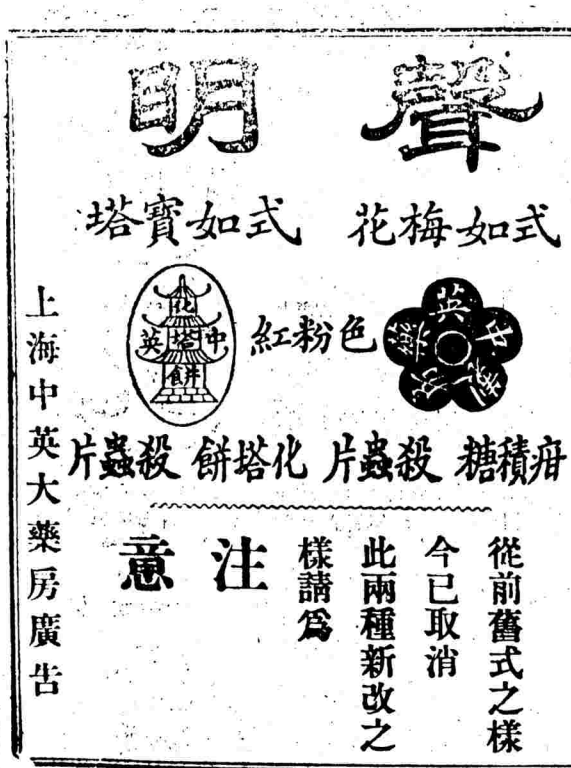 聲明
式如梅花
式如寶塔
中英藥
色粉紅
化
中塔英
餅
疳積糖 殺蟲片
化塔餅 殺蟲片
從前舊式之樣
今已取消
此兩種新改之
樣請爲
注意
上海中英大藥房廣告